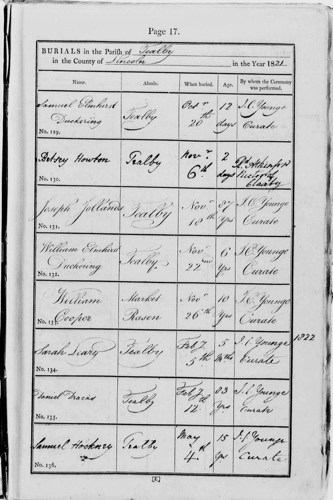 Page 17.
BURIALS in the Parish of Tealby
in the County of Lincoln in the Year 1821
Name. Abode. When buried. Age. By whom the Ceremony was performed.
Samuel Duckering Tealby Octr 20th 12 days J C Younge Curate
No. 129.
Betsey Howton Tealby Novr 6th 2 days Rector of
No. 130.
Joseph Tealby Novr 10th J C Younge Curate
No. 131.
William Duckering Tealby Novr 22nd 6 Yrs J C Younge Curate
No. 132.
William Cooper Market Rasen Novr 26th 10 Yrs J C Younge Curate
No. 133.
1822
Sarah Tealby Feby 5th 5 Mths J C Younge Curate
No. 134.
Daniel Tealby Feby 12th 83 Yrs J C Younge Curate
No. 135.
Samuel Hockney Tealby May 4th 15 Yrs J C Younge Curate
No. 136.